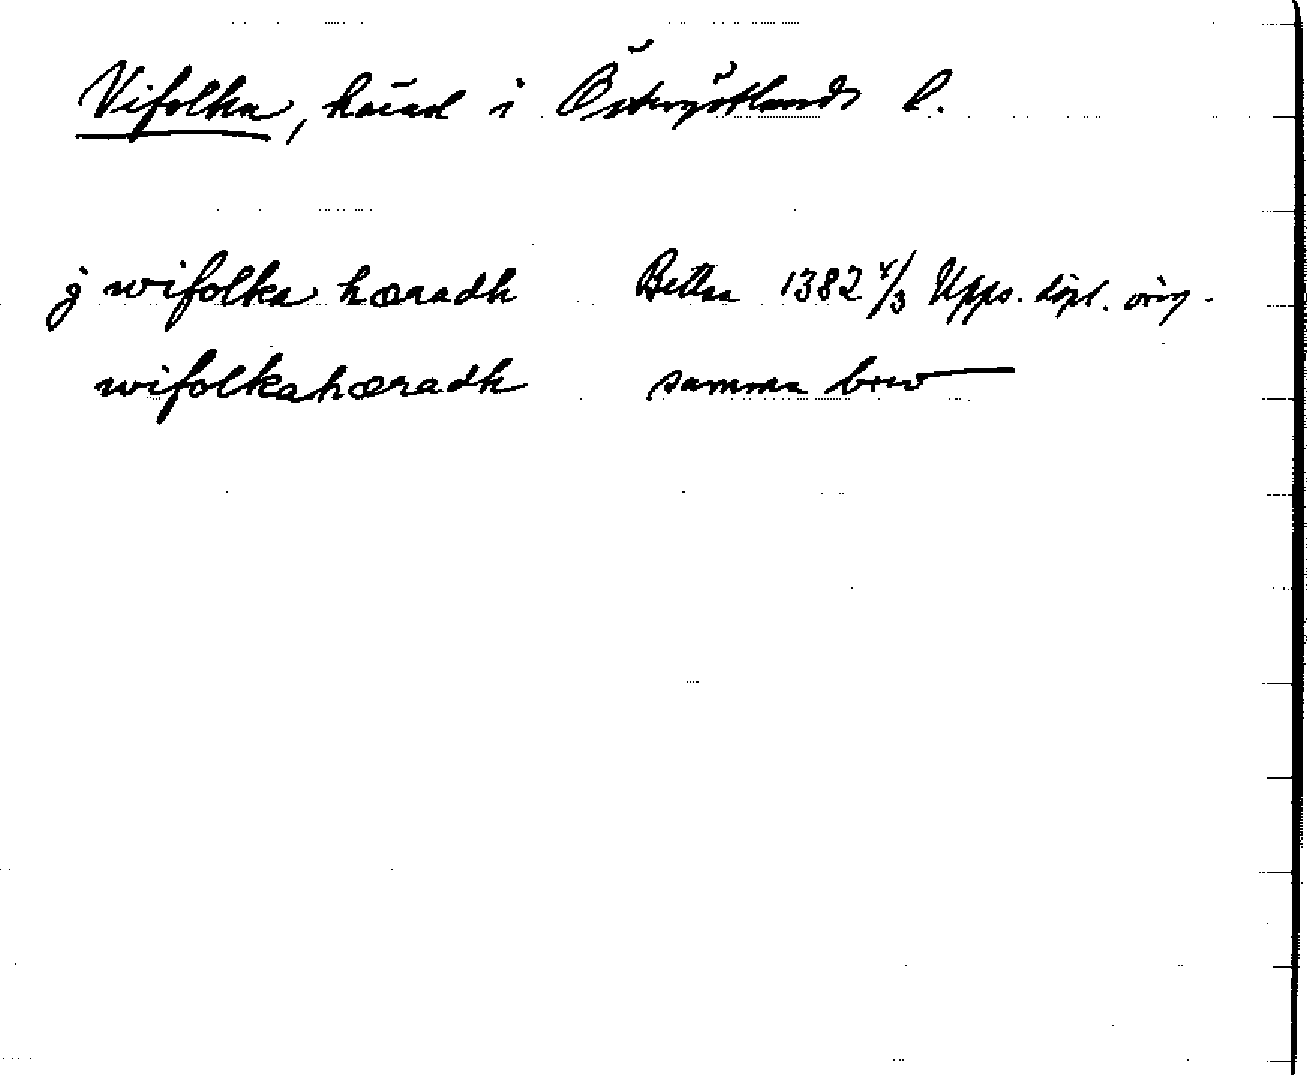 Vifolka, härad i Östergötlands l.
j wifolka hæradh Bettna 1382 4/3 Upps. dipl. orig.
wifolkahæradh samma brev